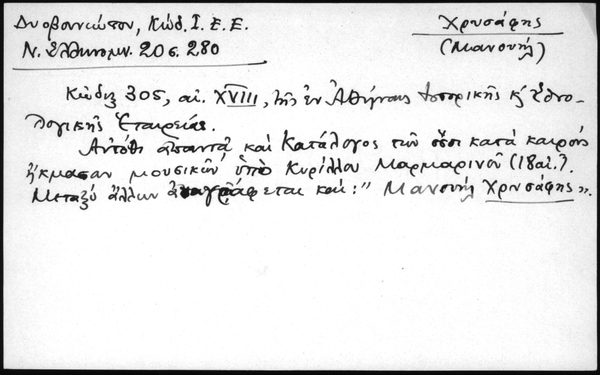 Δυοβουνιώτου, Κώδ. Ι. Ε. Ε.
Ν. Ἑλληνομν. 20 σ. 280
Χρυσάφης
(Μανουήλ)
Κῶδιξ 305, αἰ. XVIII, τῆς ἐν Ἀθήναις Ἱστορικῆς κ' Ἐθνο-
λογικῆς Ἑταιρείας.
Αὐτόθι ἀπαντᾶ καὶ Κατάλογος τῶν ὅσοι κατὰ καιροὺς
ἤκμασαν μουσικῶν ὑπὸ Κυρίλλου Μαρμαρινοῦ (18 αἰ.).
Μεταξὺ ἄλλων ἀναγράφεται καί: " Μανουὴλ Χρυσάφης ".